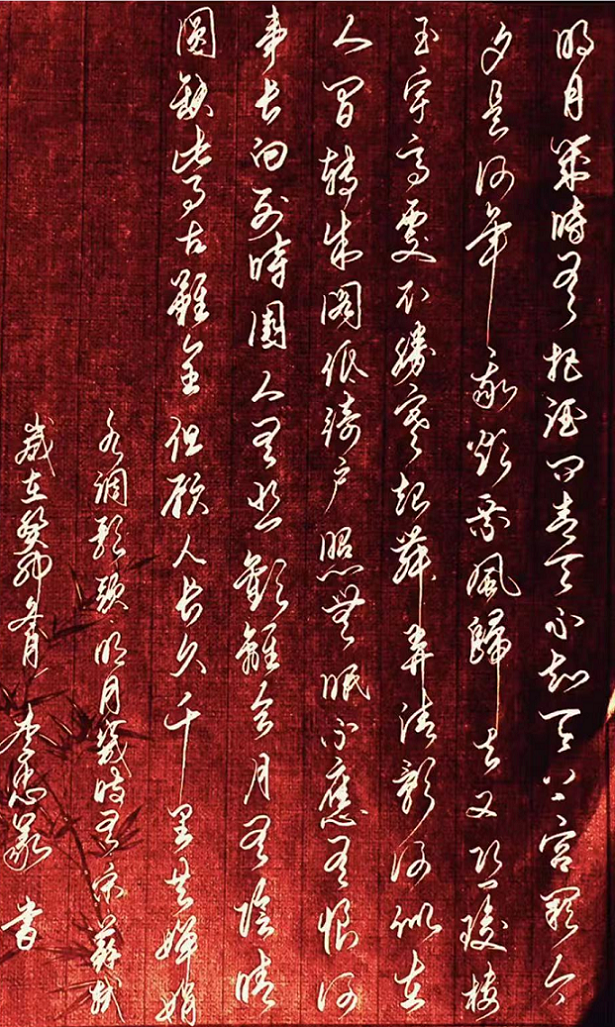 明月幾時有把酒問青天不知天上宮闕今
夕是何年我欲乘風歸去又恐瓊樓
玉宇高處不勝寒起舞弄清影何似在
人間轉朱閣低綺戶照無眠不應有恨何
事長向別時圓人有悲歡離合月有陰晴
圓缺此事古難全但願人長久千里共嬋娟
水調歌頭明月幾時有宋蘇軾
歲在癸卯冬月李忠書